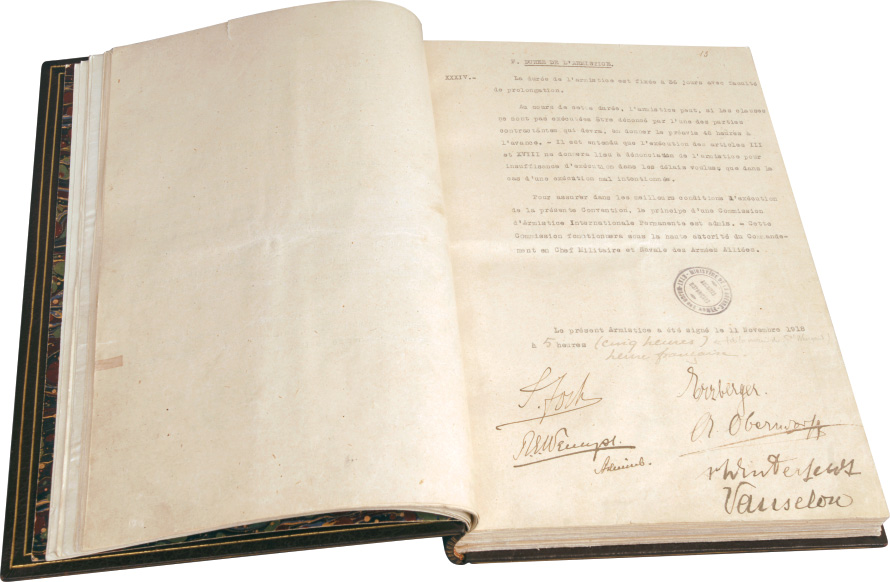 13
F. DUREE DE L'ARMISTICE.
XXXIV.- La durée de l'armistice est fixée à 36 jours avec faculté
de prolongation.
Au cours de cette durée, l'armistice peut, si les clauses
ne sont pas exécutées être dénoncé par l'une des parties
contractantes qui devra, en donner le préavis 48 heures à
l'avance. - Il est entendu que l'exécution des articles III
et XVIII ne donnera lieu à dénonciation de l'armistice pour
insuffisance d'exécution dans les délais voulus, que dans le
cas d'une exécution mal intentionnée.
Pour assurer dans les meilleures conditions l'exécution
de la présente Convention, le principe d'une Commission
d'Armistice Internationale Permanente est admis. - Cette
Commission fonctionnera sous la haute autorité du Commande-
ment en Chef Militaire et Naval des Armées Alliées.
Le présent Armistice a été signé le 11 Novembre 1918
à 5 heures (cinq heures)
heure française.
F. Foch
Erzberger.
R.E. Wemyss.
A Oberndorff
Admiral.
v Winterfeldt
Vanselow